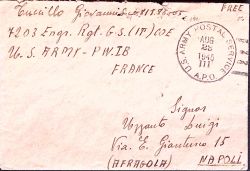 Tuccillo Giovanni
FREE
7203 Engr. Rgt. G.S. (IT) COE
U.S. ARMY - P.W.I.B
FRANCE
U.S. ARMY POSTAL SERVICE
AUG
25
1945
III
A.P.O.
Signor
Uzzauto Luigi
Via E. Gianturco 15
(AFRAGOLA) NAPOLI